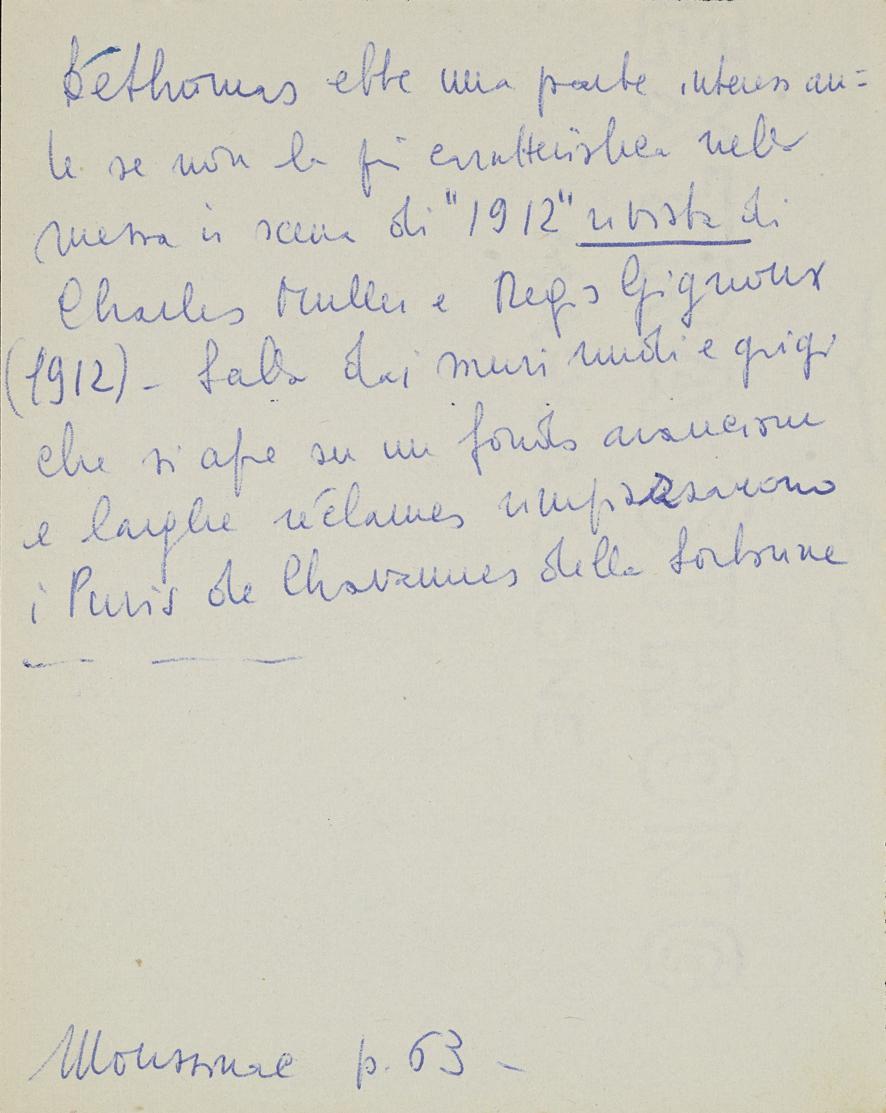 Dethomas ebbe una parte interessan=
te se non la più caratteristica nella
messa in scena di "1912" rivista di
Charles Muller e Regis Gignoux
(1912) - Sala dai muri nudi e grigi
che si apre su un fondo arancione
e larghe réclames rimpiazzarono
i Puvis de Chavannes della Sorbonne
Moussinac p. 63 -